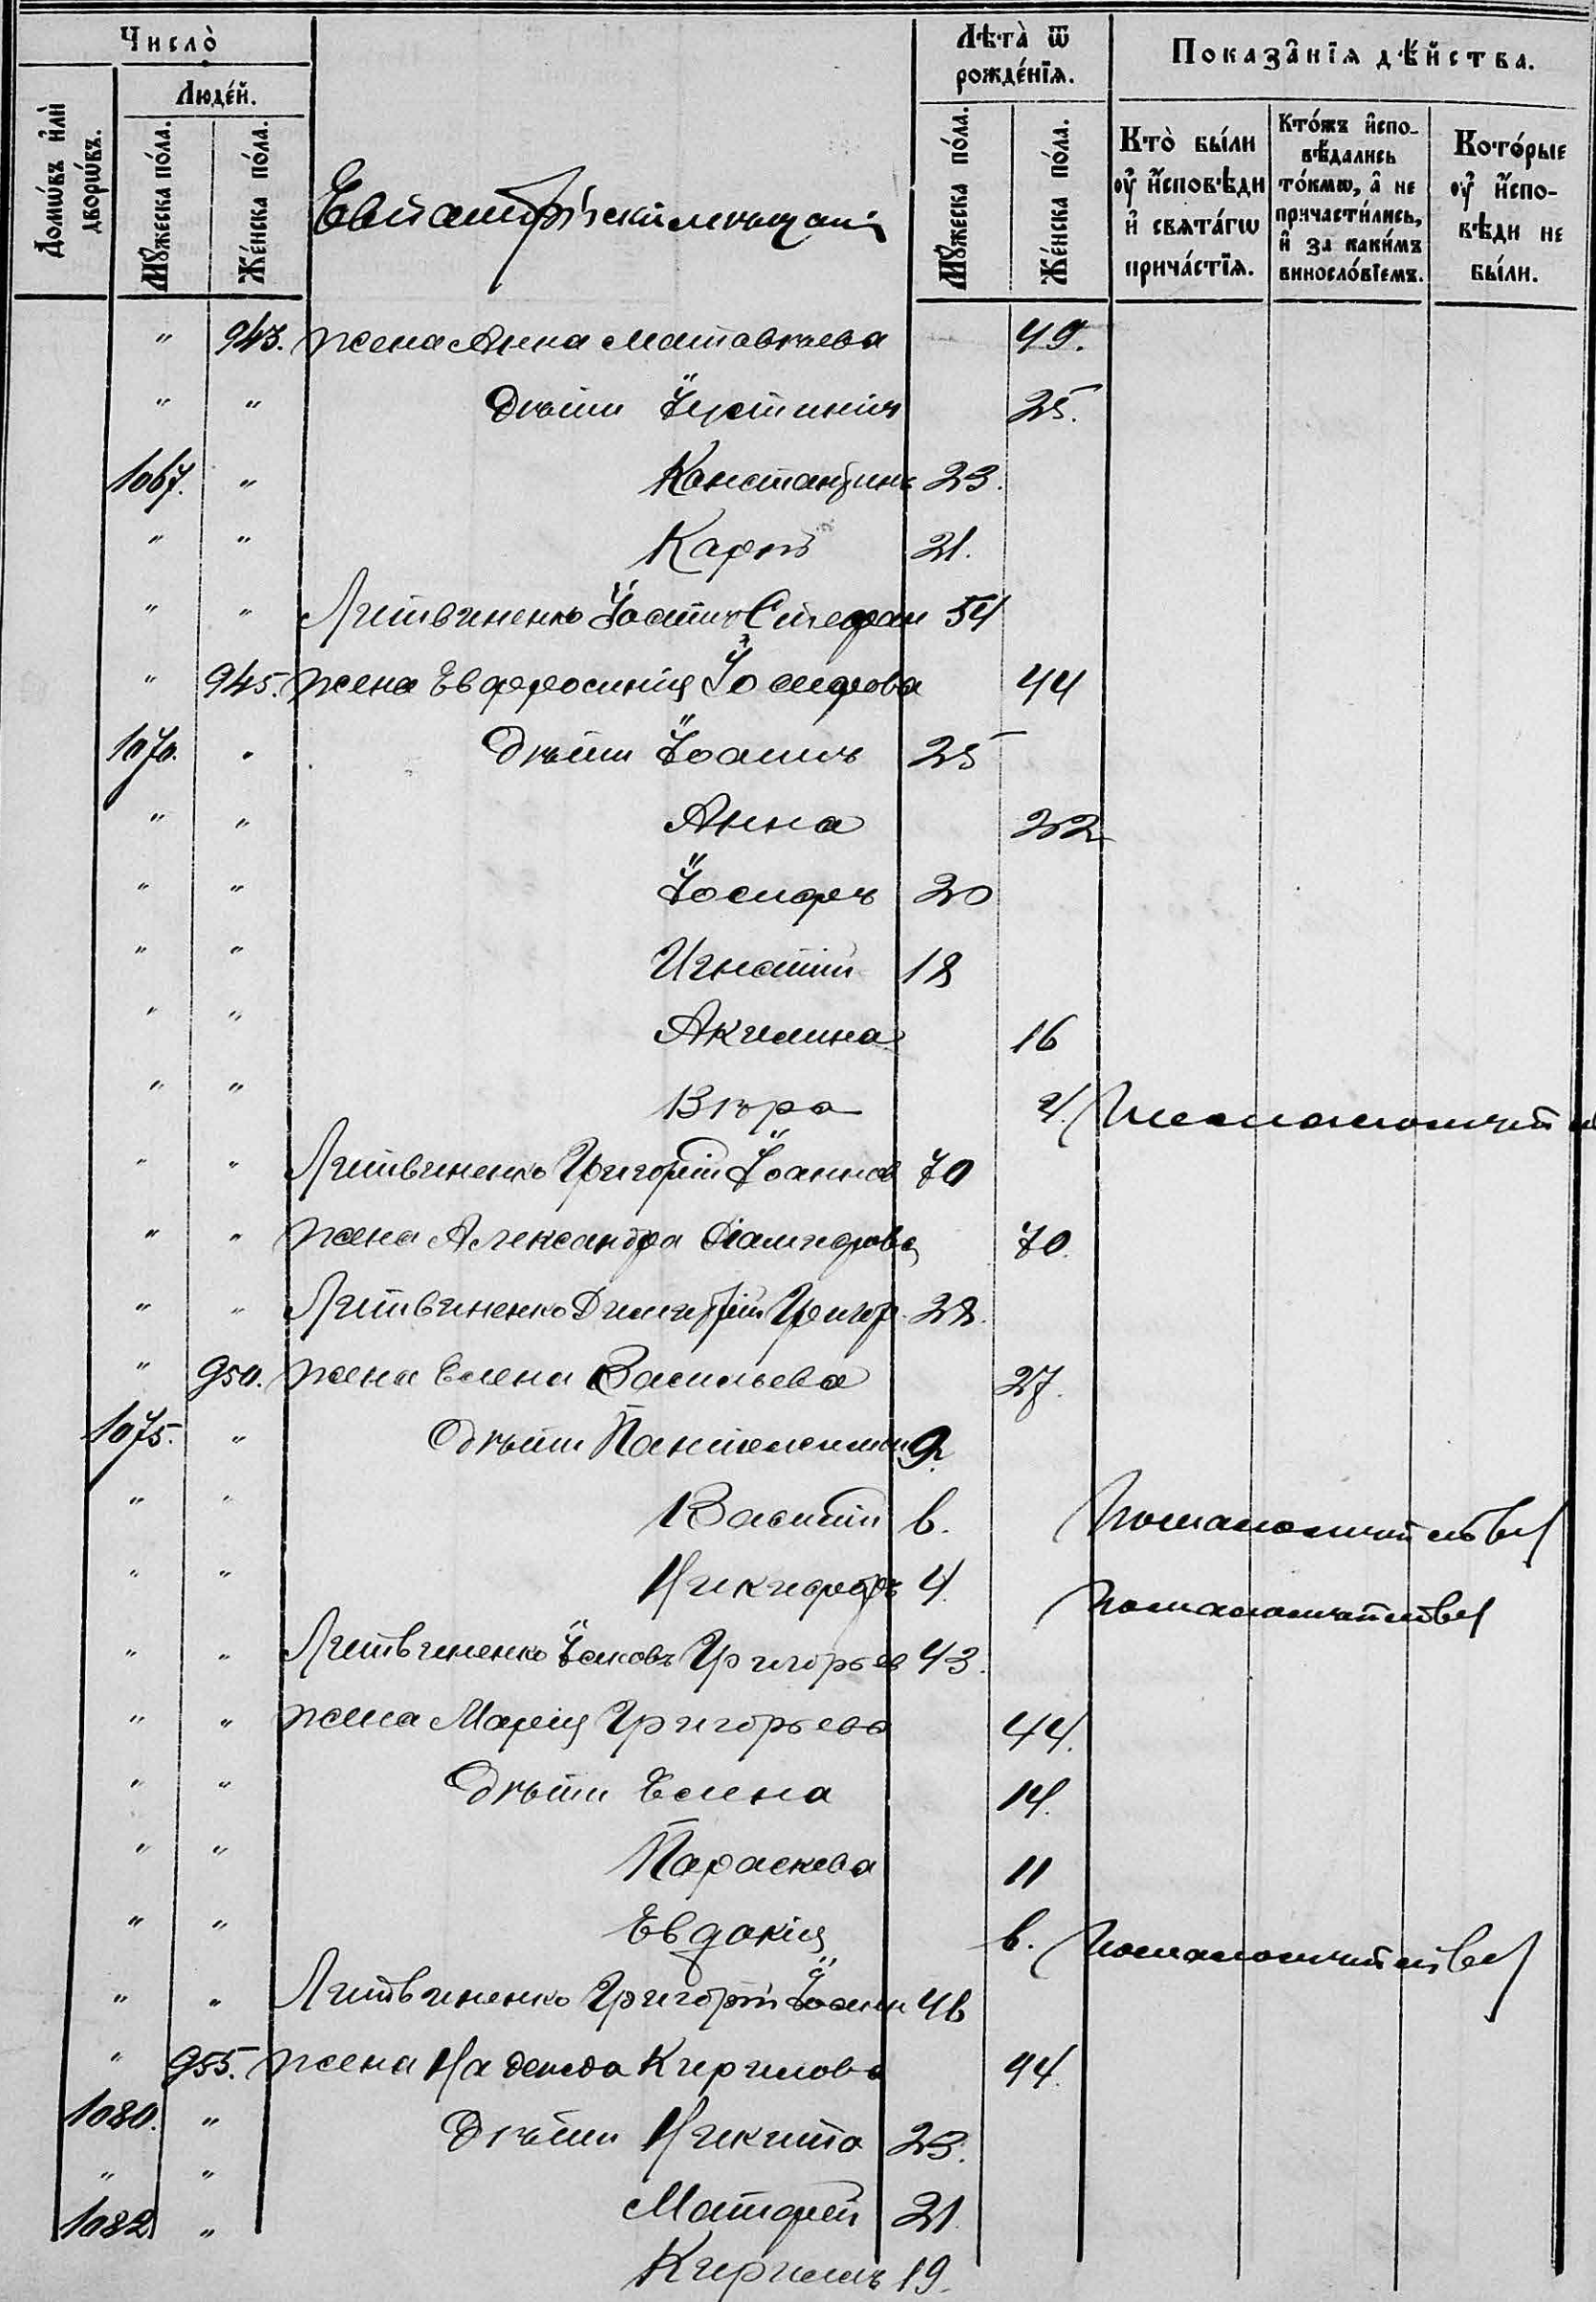 Число̀
Домѡ́въ и҆лѝ дворѡ́въ.
Люде́й.
Мꙋ́жеска по́ла.
Же́нска по́ла.
Лѣта̀ ѿ рожде́нїѧ.
Мꙋ́жеска по́ла.
Же́нска по́ла.
Показа̂нїѧ дѣ́йства.
Кто̀ бы́ли оу҆ и҆сповѣди и҆ свѧта́гѡ прича́стїѧ.
Кто́жъ и҆сповѣ́дались то́кмѡ, а҆ не причасти́лись, и҆ за каки́мъ винословїемъ.
Кото́рые оу҆ и҆сповѣди не бы́ли.
" 943. жена Анна Матвѣева 49.
" " Дѣти Іустинія 25.
1067. " Константинъ 23.
" " Карпъ 21.
" " Литвиненко Іоаннъ Стефан 54
" 945. жена Евфросинія Іосифова 44
1070. " Дѣти Іоаннъ 25
" " Анна 22
" " Іосифъ 20
" " Игнатій 18
" " Акилина 16
" " Вѣра 4.
" " Литвиненко Григорій Іоаннов 70
" " жена Александра 70.
" " Литвиненко Димитрій Григор. 28.
" 950. жена Елена Васильева 27.
1075. " Дѣти Пантелеимон 9.
" " Василій 6. по малолѣтству
" " Никифоръ 4. по малолѣтству
" " Литвиненко Іаковъ Григорьев 43.
" " жена Марія Григорьева 44.
" " Дѣти Елена 14.
" " Параскева 11
" " Евдокія 6. по малолѣтству
" " Литвиненко Григорій Іоанн 46
" 955. жена Надежда Кирилова 44.
1080. " Дѣти Никита 23.
" " Матфей 21.
1082 " Кириллъ 19.